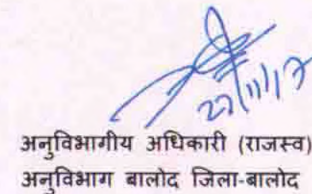 27/11/17
अनुविभागीय अधिकारी (राजस्व)
अनुविभाग बालोद जिला-बालोद